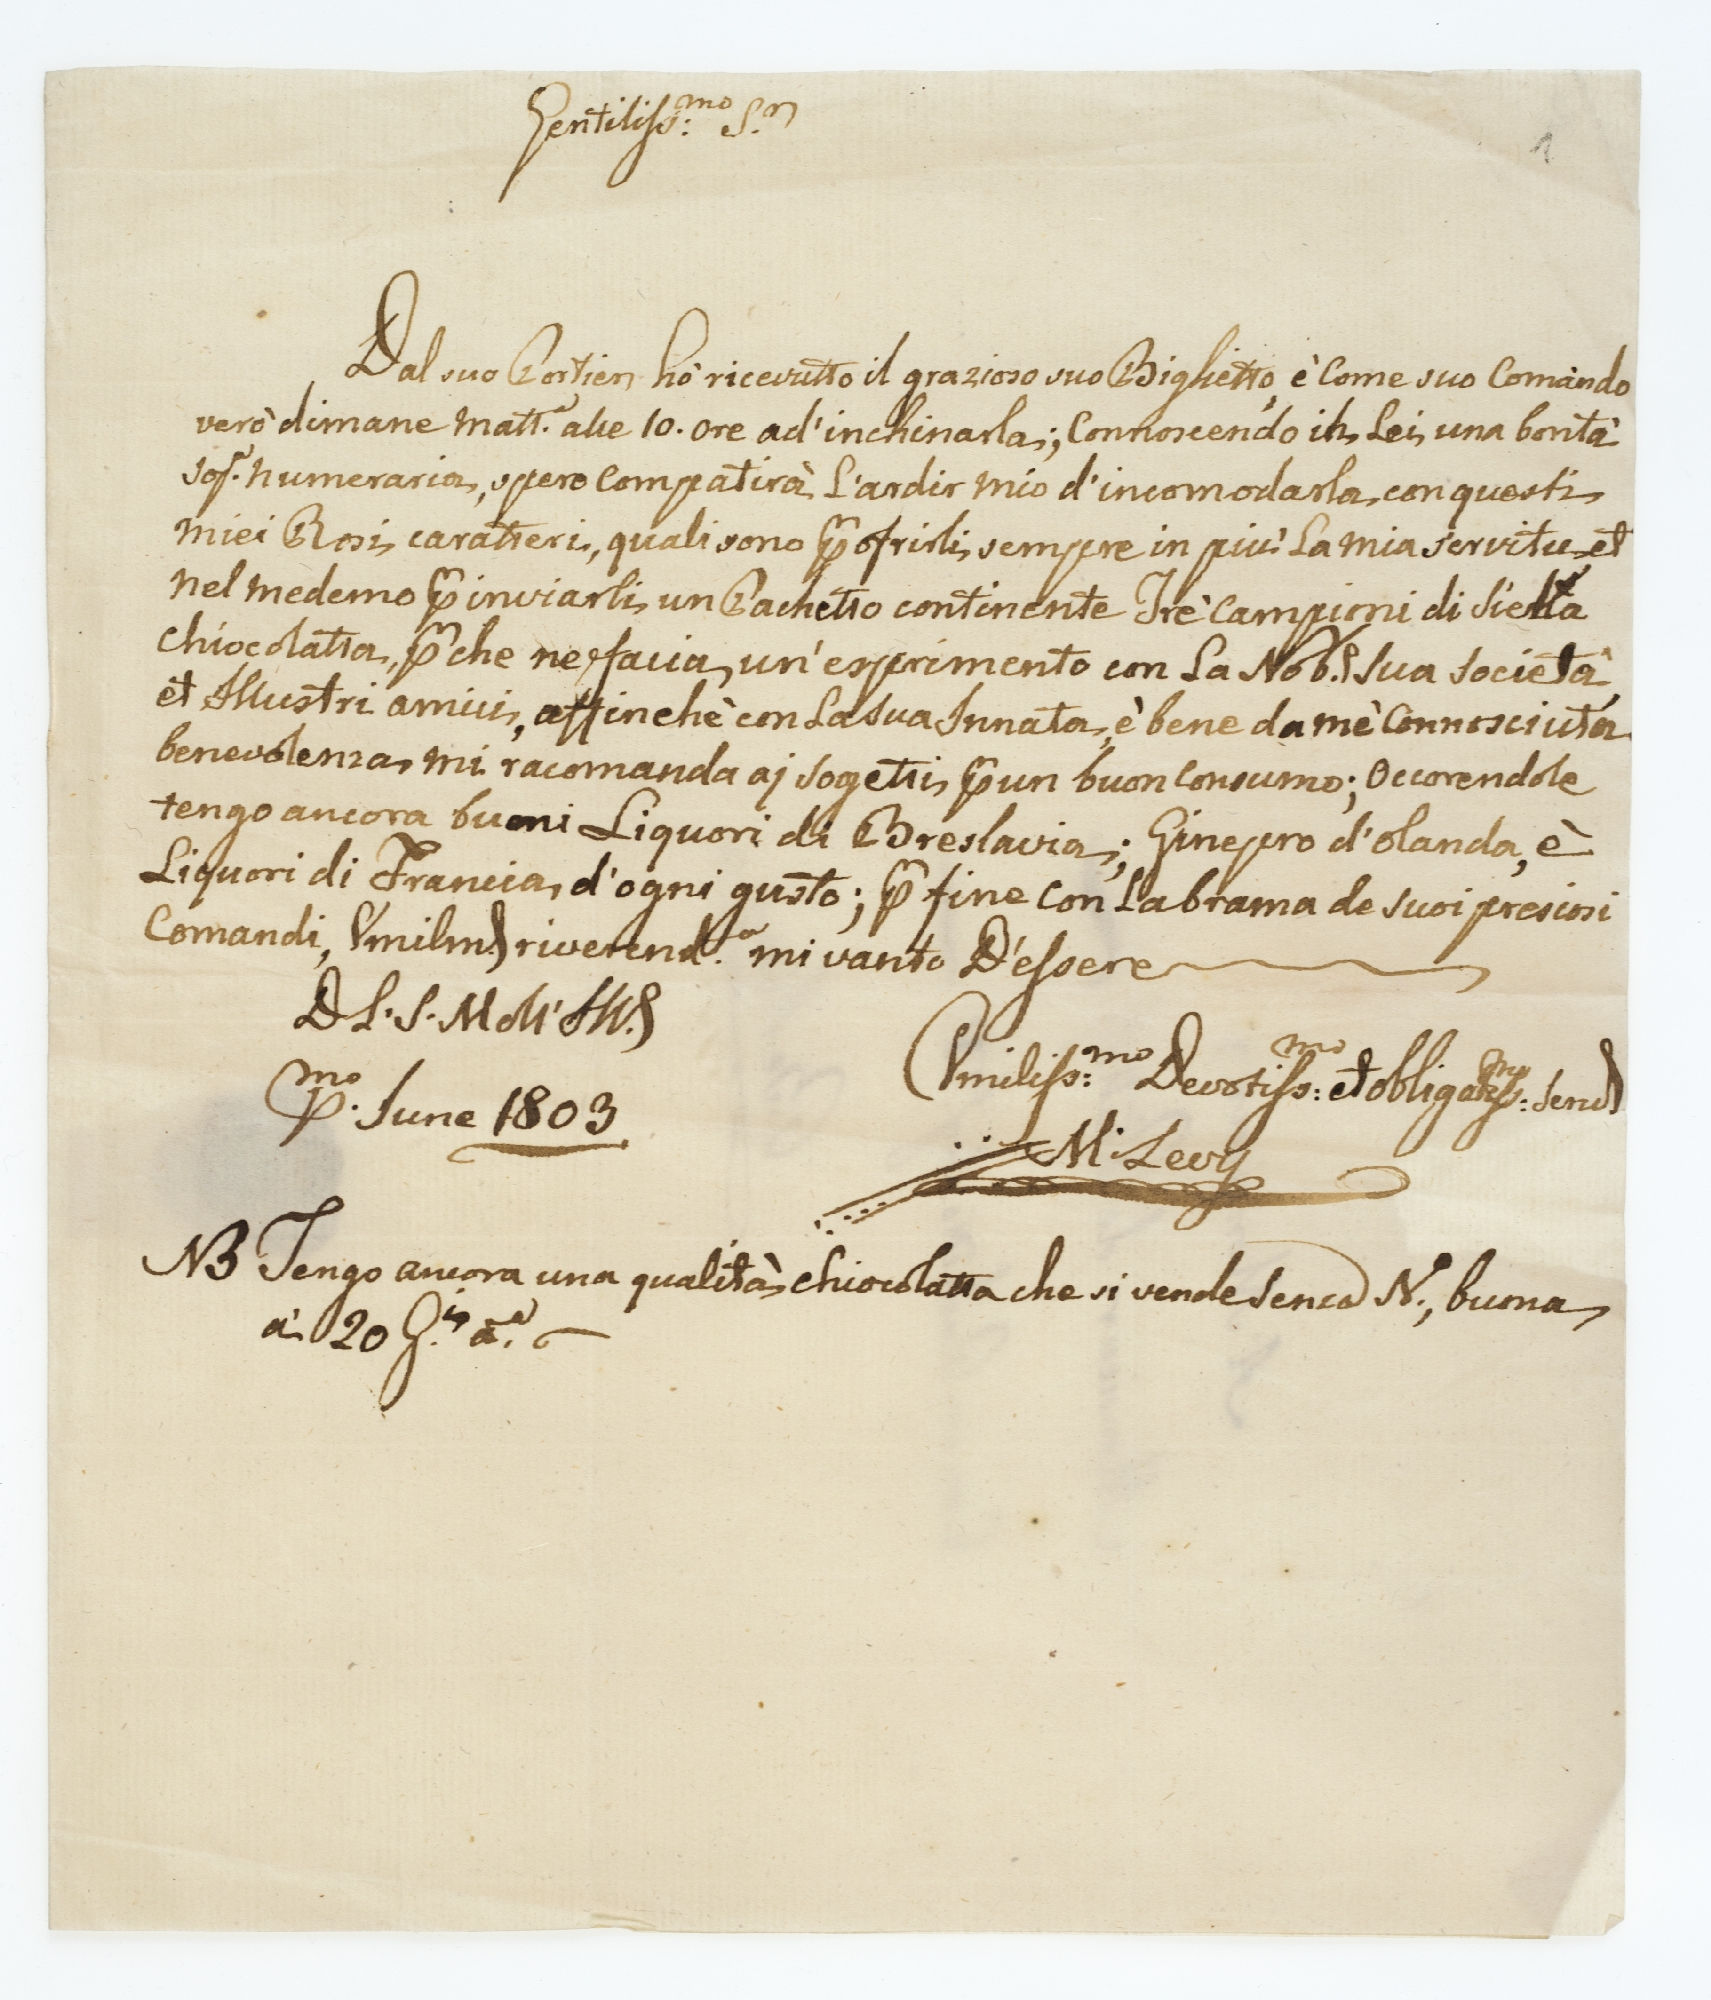 Gentiliss:mo S.r
1
Dal suo Portier hò ricevutto il grazioso suo Biglietto, è Come suo Comando
verò dimane matt.a alle 10. ore ad'inchinarla; Connoscendo in Lei una bontà
sop.a numeraria, spero Compatirà L'ardir mio d'incomodarla con questi
miei Rosi caratteri, quali sono p ofrirli sempre in più La mia servitu, et
nel medemo p inviarli un Pachetto continente Trè Campioni di Sielta
Chiocolatta, p che ne facia un'esprimento con La Nob.e Sua Società
et Illustri amici, affinchè con La sua Innata, è bene da mè Connosciuta
benevolenza mi racomanda aj Sogetti p un buon Consumo; Occorendole
tengo ancora buoni Liquori di Breslavia; Ginepro d'Olanda, è
Liquori di Francia d'ogni gusto; p fine con La brama de Suoi presiosi
Comandi, Vmilm.e riverend.a mi vanto D'essere
D L. S. Molt' Ill.e
P.mo June 1803
Vmiliss:mo Devotiss:mo et obligatiss:mo Serv.e
M: Levy
NB Tengo ancora una qualità Chiocolatta che si vende Senza N.o, buona
à 20 G.